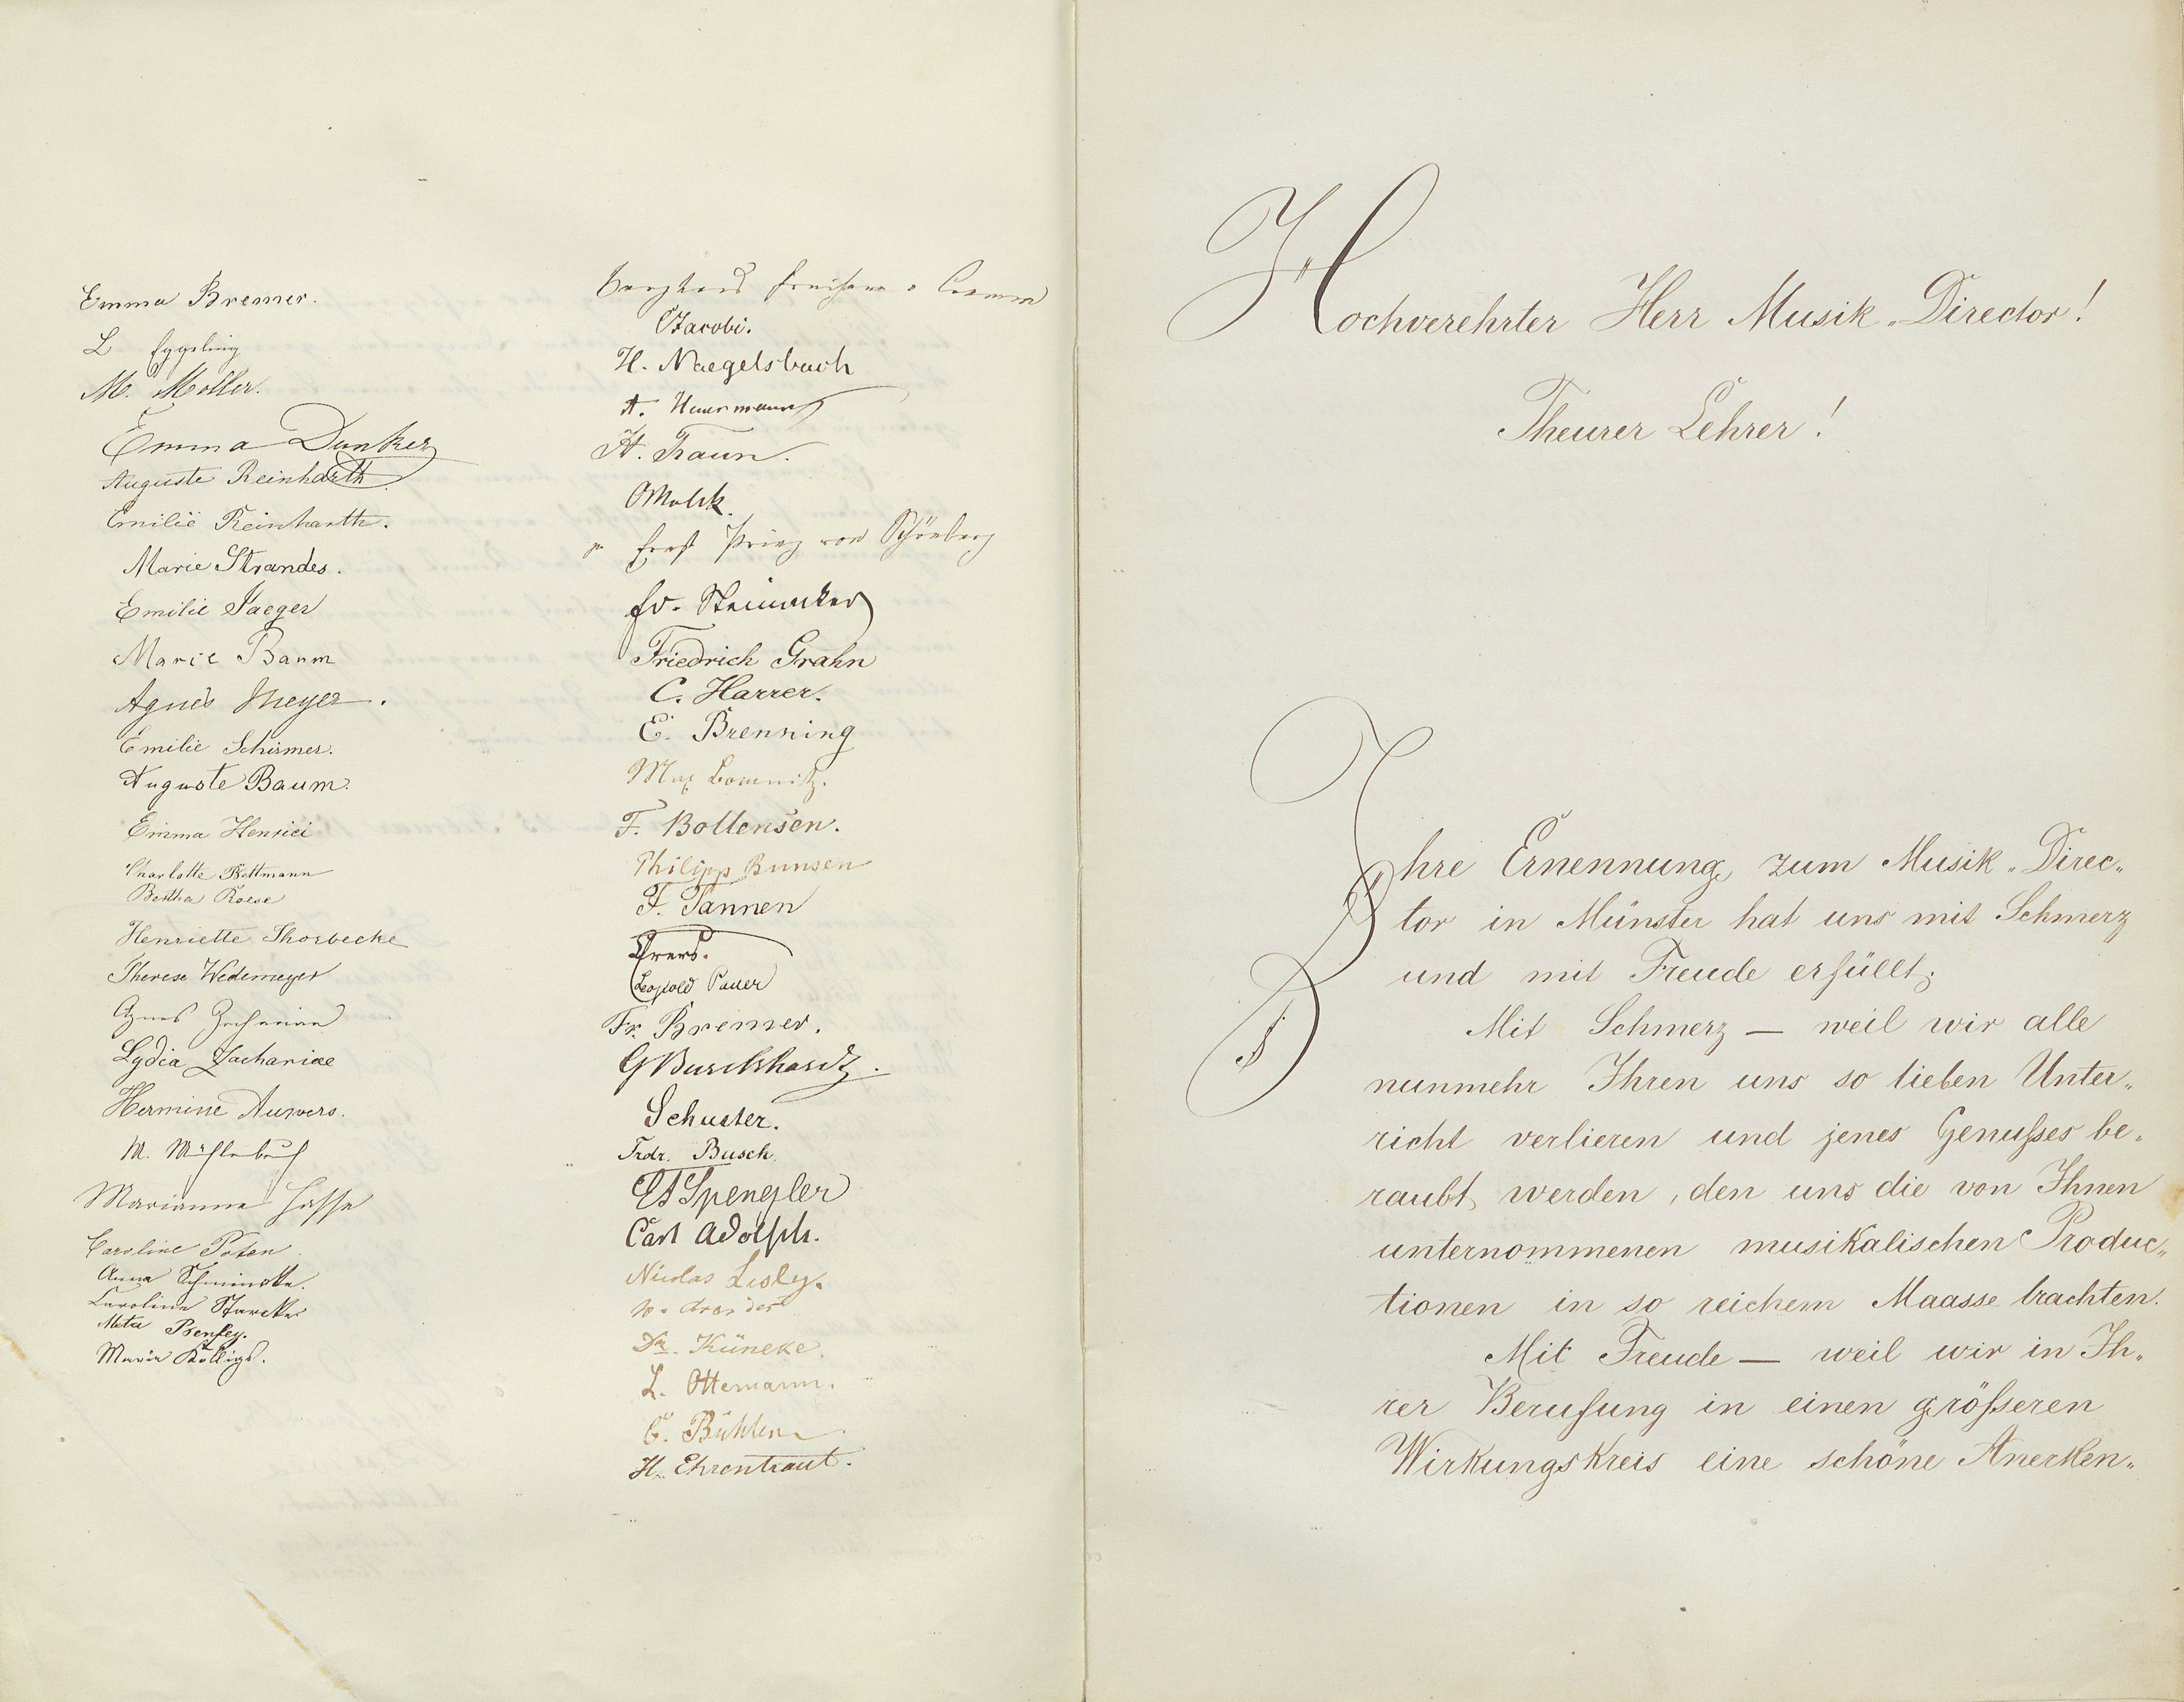 Emma Bremer.
L Eggeling
M. Möller.
Emma Dunker
Auguste Reinharth
Emilie Reinharth.
Marie Strandes.
Emilie Jaeger
Marie Baum
Agnes Meyer.
Emilie Schirmer.
Auguste Baum.
Emma Henrici
Charlotte Bettmann
Bertha Roese
Henriette Thorbecke
Therese Wedemeyer
Agnes Zachariae
Lydia Zachariae
Hermine Auwers.
M. Mühlenbruch
Marianne Hasse
Caroline Poten.
Anna Schmincke.
Caroline Starcke
Meta Benfey.
Marie Kölligs.
Jacobi.
H. Naegelsbach
A.
H. Traun.
Ernst Prinz von Schönburg
Fr. Steinacker
Friedrich Grahn
C. Harrer.
E. Brenning
Max
F. Bollensen.
Philipp Bunsen
F. Tannen
Leopold Pauer
Fr. Bremer.
G Burckhardt.
Schuster.
Frdr. Busch.
Spengler
Carl Adolph.
Nicolas Lesley.
Dr. Küneke.
L. Ottemann.
C. Bühler
H. Ehrentraut.
Hochverehrter Herr Musik-Director!
Theurer Lehrer!
Ihre Ernennung zum Musik-Direc-
tor in Münster hat uns mit Schmerz
und mit Freude erfüllt;
Mit Schmerz — weil wir alle
nunmehr Ihren uns so lieben Unter-
richt verlieren und jenes Genußes be-
raubt werden, den uns die von Ihnen
unternommenen musikalischen Produc-
tionen in so reichem Maasse brachten.
Mit Freude — weil wir in Ih-
rer Berufung in einen größeren
Wirkungskreis eine schöne Anerken-